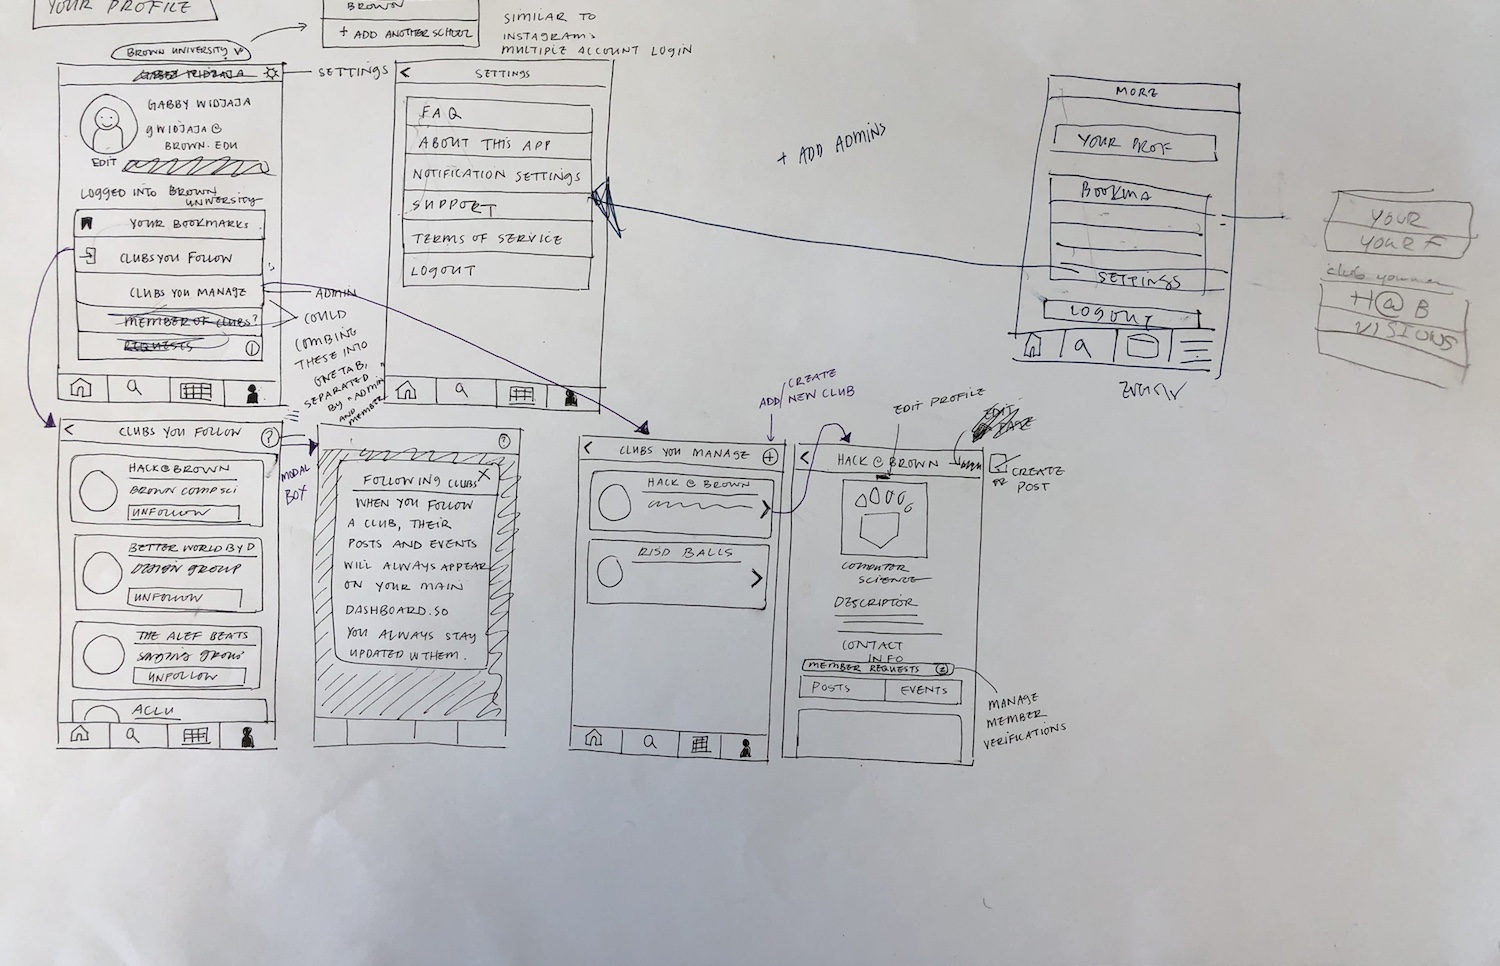 YOUR PROFILE
BROWN
+ ADD ANOTHER SCHOOL
SIMILAR TO
INSTAGRAM'S
MULTIPLE ACCOUNT LOGIN
BROWN UNIVERSITY
SETTINGS
GABBY WIDJAJA
GWIDJAJA@
BROWN.EDU
EDIT
LOGGED INTO BROWN
UNIVERSITY
YOUR BOOKMARKS
CLUBS YOU FOLLOW
CLUBS YOU MANAGE
MEMBER OF CLUBS?
REQUESTS
ADMIN
COULD
COMBINE
THESE INTO
ONE TAB,
SEPARATED
BY "ADMIN"
AND
MEMBER
SETTINGS
FAQ
ABOUT THIS APP
NOTIFICATION SETTINGS
SUPPORT
TERMS OF SERVICE
LOGOUT
+ ADD ADMINS
MORE
YOUR PROF
BOOKMA
SETTINGS
LOGOUT
YOUR
YOUR F
H@B
VISIONS
CLUBS YOU FOLLOW
?
HACK@BROWN
BROWN COMPSCI
UNFOLLOW
BETTER WORLD BY D
DESIGN GROUP
UNFOLLOW
THE ALEF BEATS
SINGING GROUP
UNFOLLOW
ACLU
MODAL
BOX
?
FOLLOWING CLUBS X
WHEN YOU FOLLOW
A CLUB, THEIR
POSTS AND EVENTS
WILL ALWAYS APPEAR
ON YOUR MAIN
DASHBOARD. SO
YOU ALWAYS STAY
UPDATED W THEM.
ADD/CREATE
NEW CLUB
CLUBS YOU MANAGE +
HACK @ BROWN
RISD BALLS
EDIT PROFILE
HACK @ BROWN
CREATE
POST
COMPUTER
SCIENCE
DESCRIPTOR
CONTACT
INFO
MEMBER REQUESTS 2
POSTS
EVENTS
MANAGE
MEMBER
VERIFICATIONS